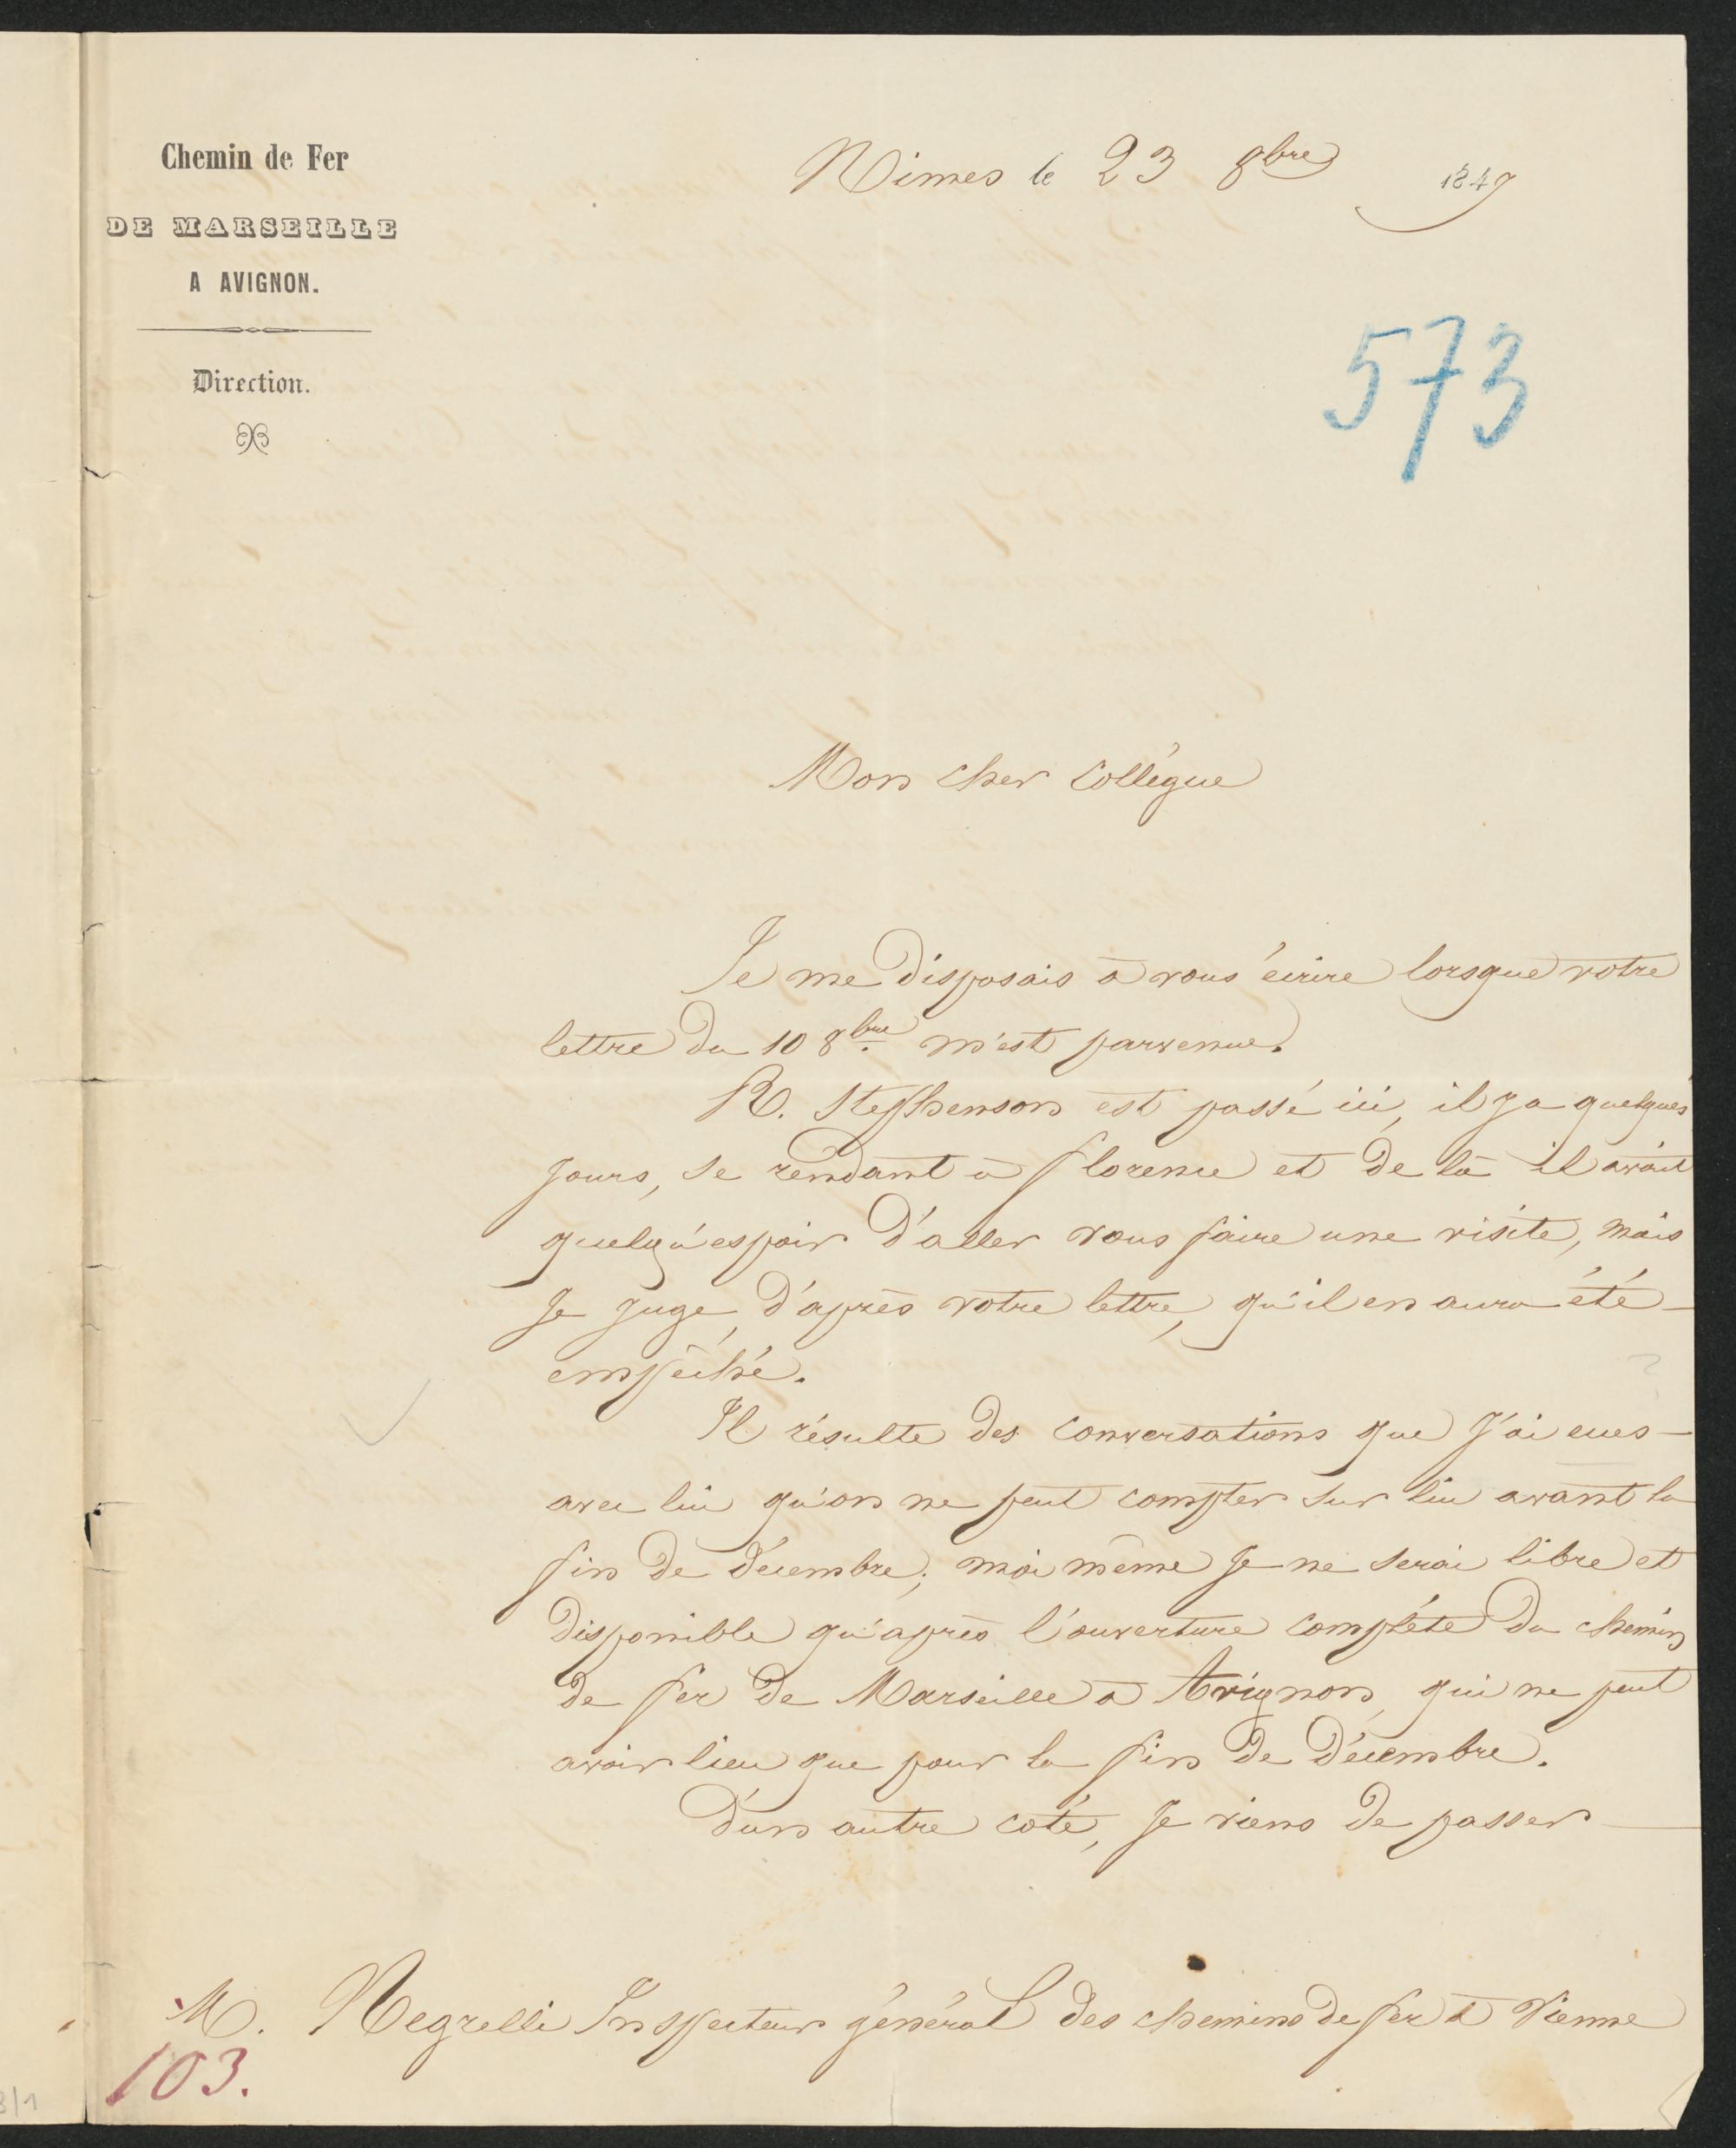 Chemin de Fer
DE MARSEILLE
A AVIGNON.
Direction.
Nimes le 23 8bre 1847
573
Mon cher Collègue
Je me disposais à vous écrire lorsque votre
lettre du 10 8bre. m'est parvenue.
R. Stephenson est passé ici, il y a quelques
jours, se rendant à florence et de là il avait
quelqu'espoir d'aller vous faire une visite, mais
je juge, d'après votre lettre, qu'il en aura été
empêché.
Il résulte des conversations que j'ai eues
avec lui qu'on ne peut compter sur lui avant la
fin de décembre; moi même je ne serai libre et
disponible qu'après l'ouverture complète du chemin
de fer de Marseille à Avignon, qui ne peut
avoir lieu que pour la fin de Décembre.
D'un autre coté, je viens de passer
M. Negrelli Inspecteur général des chemins de fer à Vienne
103.